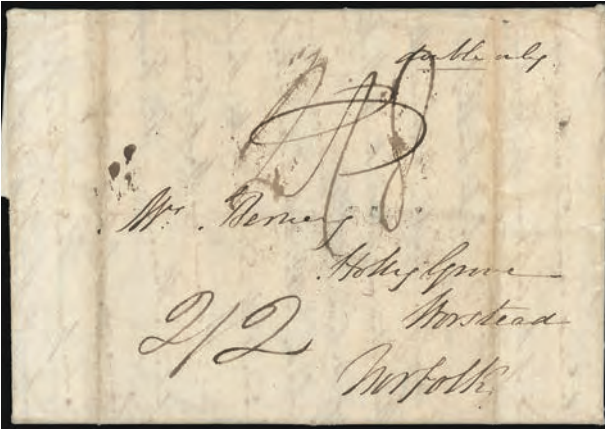 double only
Mrs. Berners
Holly Grove
Worstead
Norfolk
2/2